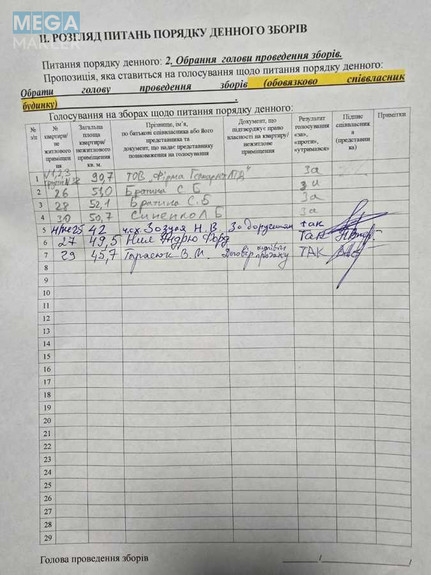 MEGA
МАКЛЕР
ІІ. РОЗГЛЯД ПИТАНЬ ПОРЯДКУ ДЕННОГО ЗБОРІВ
Питання порядку денного: 2. Обрання голови проведення зборів.
Пропозиція, яка ставиться на голосування щодо питання порядку денного:
Обрати голову проведення зборів (обовязково співвласник
будинку)
Голосування на зборах щодо питання порядку денного:
№ з/п № квартири/нежитлового приміщення Загальна площа квартири/нежитлового приміщення кв. м. Прізвище, ім'я, по батькові співвласника або його представника та документ, що надає представнику повноваження на голосування Документ, що підтверджує право власності на квартиру/нежитлове приміщення Результат голосування «за», «проти», «утримався» Підпис співвласника (представника) Примітки
1 90,7 ТОВ "Фірма За
2 26 53,0 Братина С Б За
3 28 52,1 Братина С.Б За
4 30 50,7 Синенко Л Б За
5 42 Н.В. За дорученням так
6 27 49,5 Так
7 29 45,7 Тарасюк В.М. Договір продажу ТАК
8
9
10
11
12
13
14
15
16
17
18
19
20
21
22
23
24
25
26
27
28
29
Голова проведення зборів / /